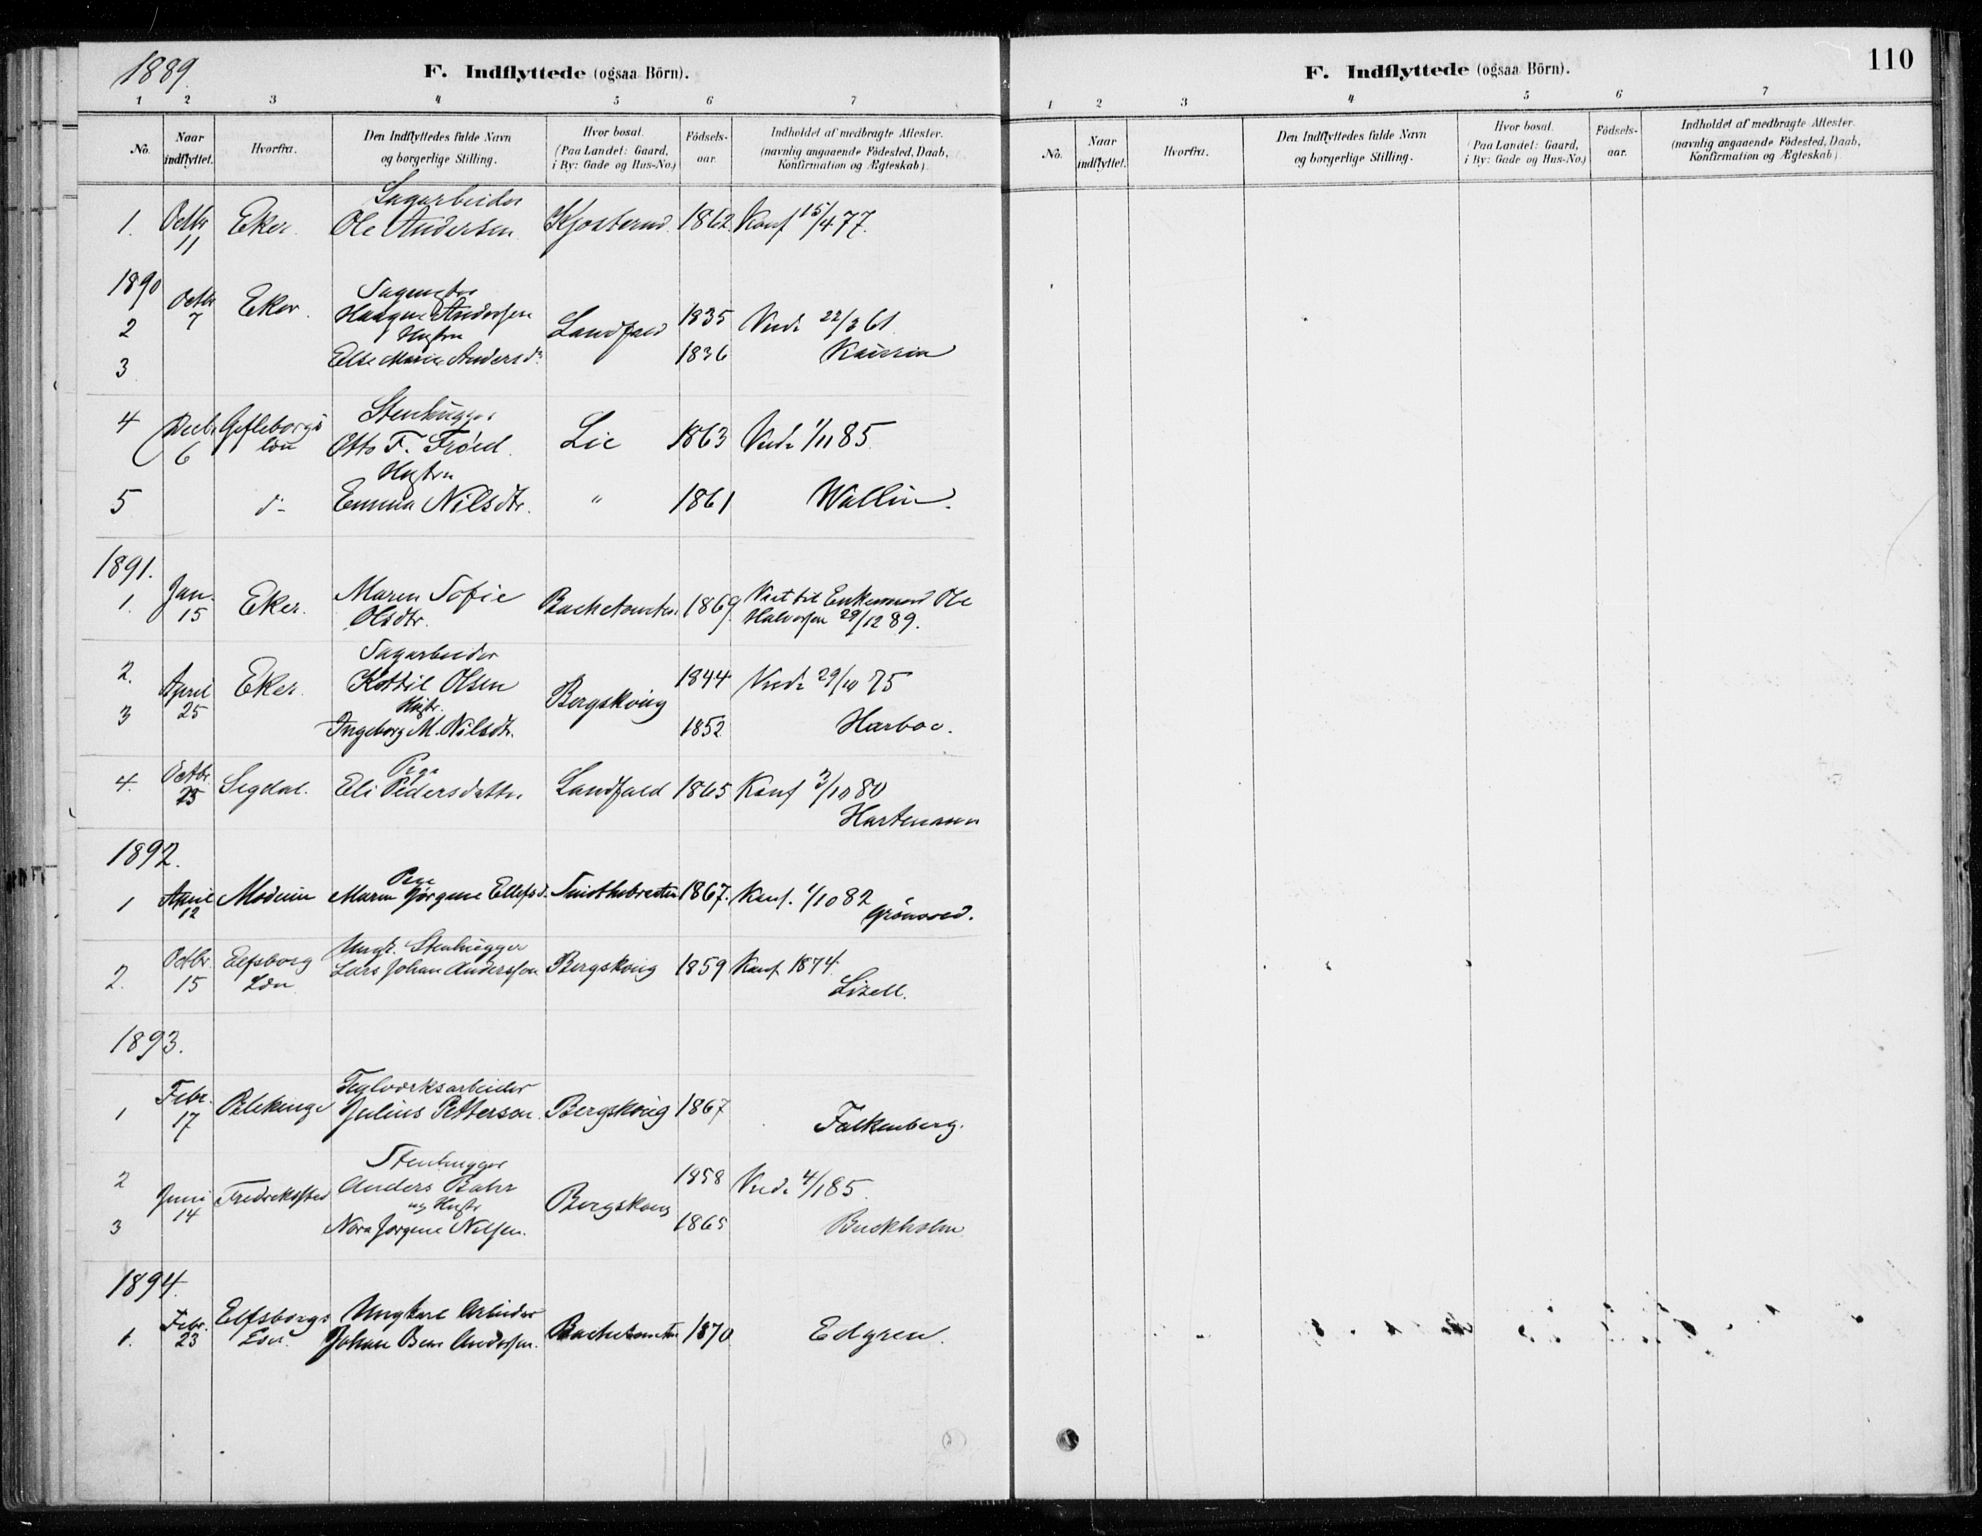 1889.
F. Indflyttede (ogsaa Börn).
1 2 3 4 5 6 7
No. Naar indflyttet. Hvorfra. Den Indflyttedes fulde Navn og borgerlige Stilling. Hvor bosat. (Paa Landet: Gaard, i By: Gade og Hus-No.) Födselsaar. Indholdet af medbragte Attester. (navnlig angaaende Födested, Daab, Konfirmation og Ægteskab).
Sagarbeider
1. Octbr 11 Eker. Ole Andersen Kjosterud. 1862. Konf 15/4 77.
1890
2 Octbr 7 Eker. Haagen Andersen Landfald 1835 Viede 22/3 61
Hustru
3 Else Marie Andersd. 1836
Stenhugger
4 Decbr 6 Gefleborgs Län Otto F. Fröed. Lie 1863 Viede 1/11 85.
Hustru
5 d- Emma Nilsdtr. " 1861 Wallin.
1891.
1. Jan. 15 Eker. Maren Sofie Olsdtr. Bachetomten 1869. Viet til Enkemand Ole Halvorsen 29/12 89.
Sagarbeider
2. April 25 Eker. Kettil Olsen Bergskoug 1844 Viede 29/10 75
Hustr.
3 Ingeborg M. Nilsdtr. 1852 Harboe.
Pige
4. Octbr. 25 Sigdal. Eli Pedersdatter Landfald 1865 Konf 3/10 80
Hartmann
1892.
Pige
1 April 12 Modum Maren Jörgine Ellefsd. 1867. Konf. 1/10 82
Grönvold.
Ungk. Stenhugger
2. Octbr. 15 Elfsborg Län Lars Johan Andersson Bergskoug 1859 Konf 1874.
Lizell.
1893.
Teglværksarbeider
1 Febr. 17 Blekinge Julius Petterson. Bergskoug 1867
Falkenberg.
Stenhugger
2 Juni 14 Fredrikstad Anders Bahr Bergskoug 1858 Viede 4/1 85.
og Hustr
3 Nora Jörgine Nilsen. 1865 Buckholm
1894.
Ungkarl Arbeider
1. Febr. 23 Elfsborgs Län. Johan Andersen. Bachetomten 1870 Edgren.
110
F. Indflyttede (ogsaa Börn).
1 2 3 4 5 6 7
No. Naar indflyttet. Hvorfra. Den Indflyttedes fulde Navn og borgerlige Stilling. Hvor bosat. (Paa Landet: Gaard, i By: Gade og Hus-No.) Födselsaar. Indholdet af medbragte Attester. (navnlig angaaende Födested, Daab, Konfirmation og Ægteskab)